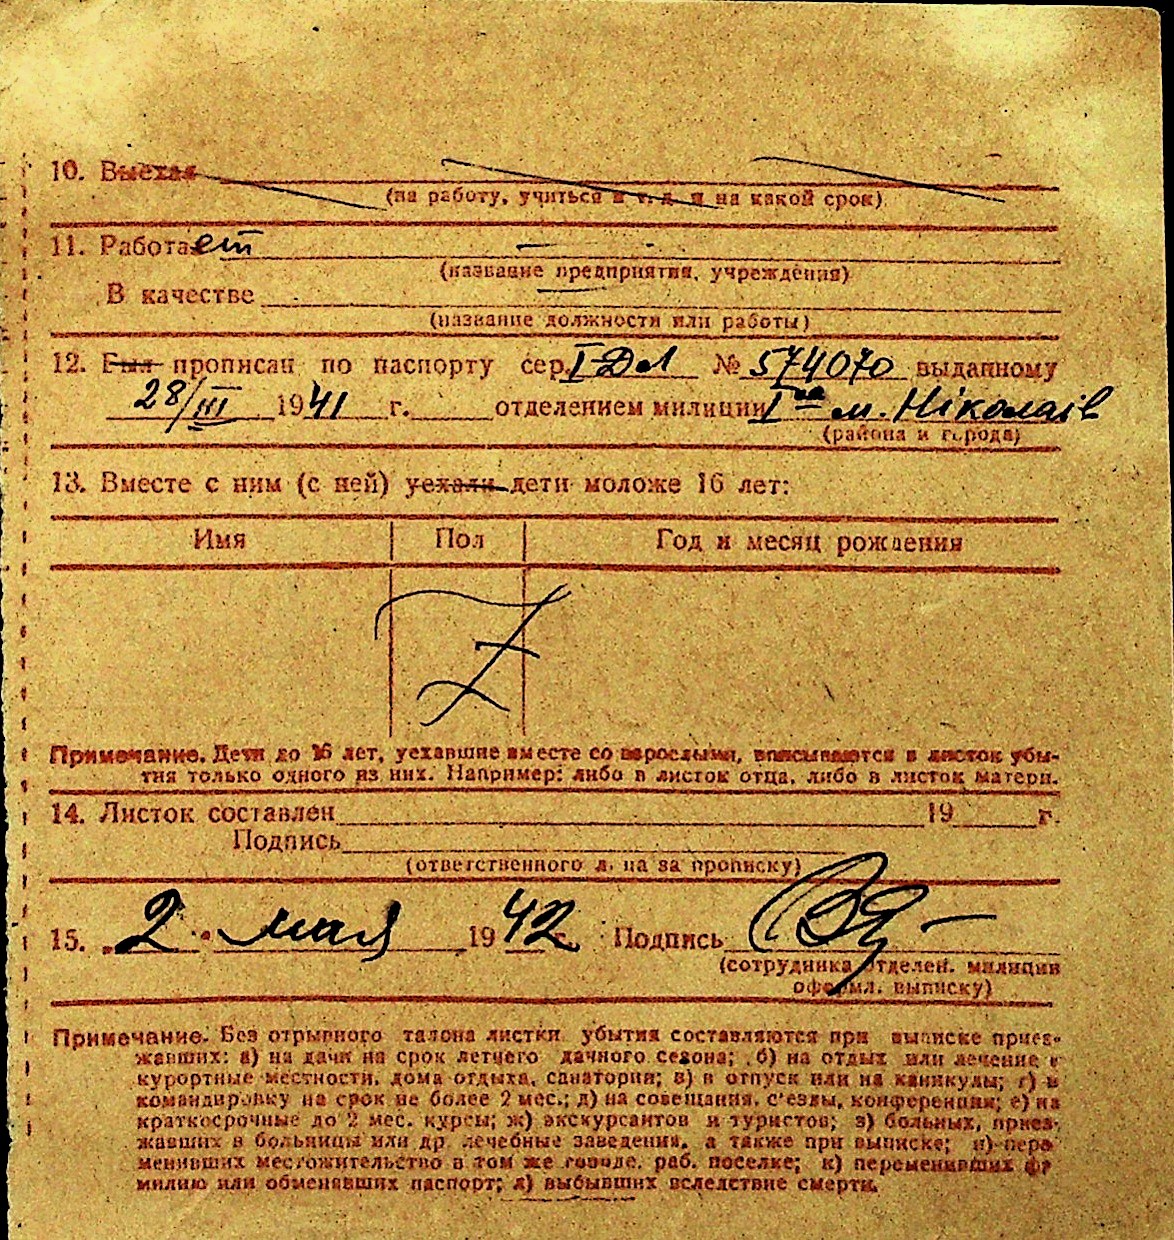 10. Выехал
(на работу, учиться и т. д. и на какой срок)
11. Работает —
(название предприятия, учреждения)
В качестве
(название должности или работы)
12. Был прописан по паспорту сер. I ДЛ № 574070 выданному
28/III 1941 г. отделением милиции I м. Ніколаів
(района и города)
13. Вместе с ним (с ней) уехали дети моложе 16 лет:
Имя Пол Год и месяц рождения
Z
Примечание. Дети до 16 лет, уехавшие вместе со взрослыми, вписываются в листок убы-
тия только одного из них. Например: либо в листок отца, либо в листок матери.
14. Листок составлен 19 г.
Подпись
(ответственного лица за прописку)
15. „2" мая 1942 г. Подпись
(сотрудника отделен. милиции
оформл. выписку)
Примечание. Без отрывного талона листки убытия составляются при выписке приез-
жавших: а) на дачи на срок летнего дачного сезона; б) на отдых или лечение в
курортные местности, дома отдыха, санатории; в) в отпуск или на каникулы; г) в
командировку на срок не более 2 мес.; д) на совещания, с'езды, конференции; е) на
краткосрочные до 2 мес. курсы; ж) экскурсантов и туристов; з) больных, приез-
жавших в больницы или др. лечебные заведения, а также при выписке; и) пере
менивших местожительство в том же городе, раб. поселке; к) переменивших фа
милию или обменявших паспорт; л) выбывших вследствие смерти.